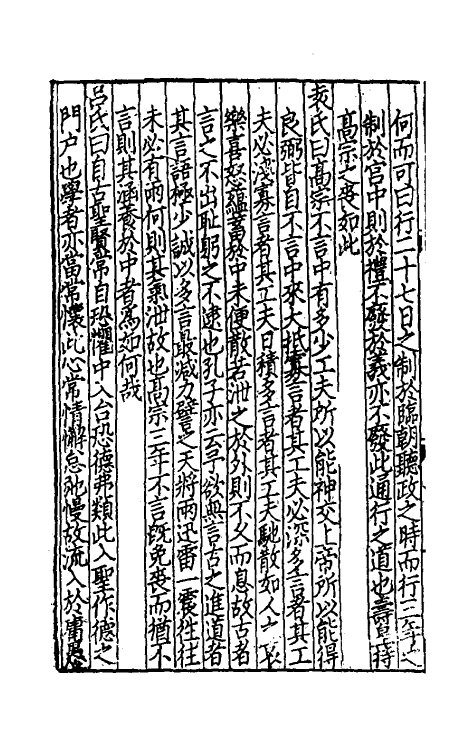 何而可曰行二十七日之制於臨朝聽政之時而行三年之
制於宮中則於禮不廢於義亦不廢此通行之道也壽皇持
高宗之喪如此
袁氏曰高宗不言中有多少工夫所以能神交上帝所以能得
良弼皆自不言中來大抵寡言者其工夫必深多言者其工
夫必淺寡言者其工夫日積多言者其工夫馳散如人
樂喜怒蘊蓄於中未便散若泄之於外則不久而息故古者
言之不出恥躬之不逮也孔子亦云予欲無言古之進道者
其言語極少誠以多言最減力譬之天將雨迅雷一震往往
未必有雨何則其氣泄故也高宗三年不言既免喪而猶不
言則其涵養於中者爲如何哉
呂氏曰自古聖賢常自恐懼中入台恐德弗類此入聖作德之
門户也學者亦當常懷此心常情懈怠弛慢故流入於庸愚